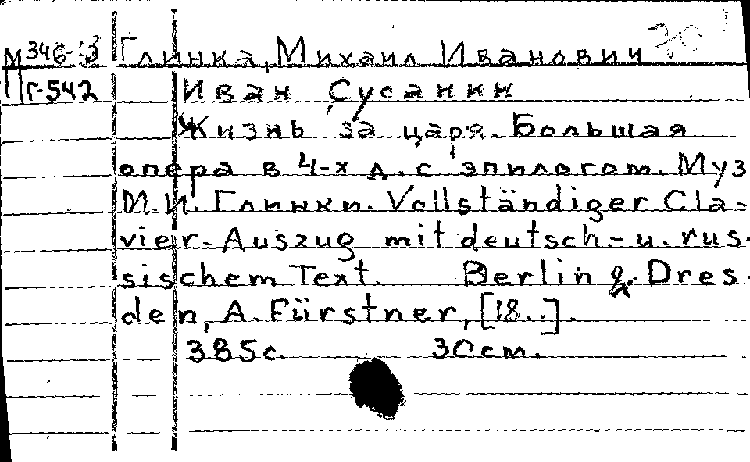 М346-13 Глинка, Михаил Иванович 30
Г-542 Иван Сусанин
Жизнь за царя. Большая
опера в 4-х д. с эпилогом. Муз
М.И. Глинки. Vollständiger Cla-
vier-Auszug mit deutsch-u. rus-
sischem Text. Berlin & Dres-
den, A. Fürstner, [18..].
385с. 30см.